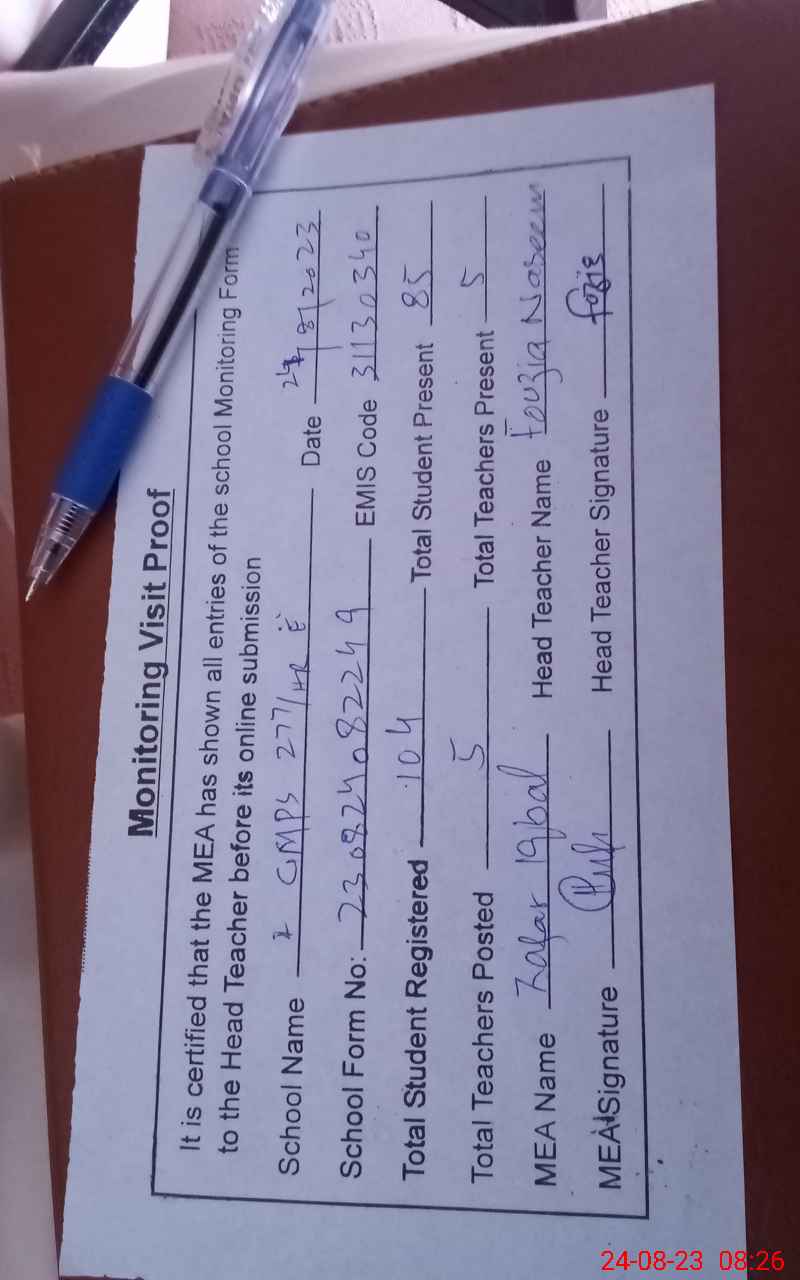 Monitoring Visit Proof
It is certified that the MEA has shown all entries of the school Monitoring Form
to the Head Teacher before its online submission
School Name GMPS 277/HR Date 24/8/2023
School Form No: 230824082249 EMIS Code 31130340
Total Student Registered 104 Total Student Present 85
Total Teachers Posted 5 Total Teachers Present 5
MEA Name Zafar Iqbal Head Teacher Name Fouzia Naseem
MEA Signature Head Teacher Signature
24-08-23 08:26